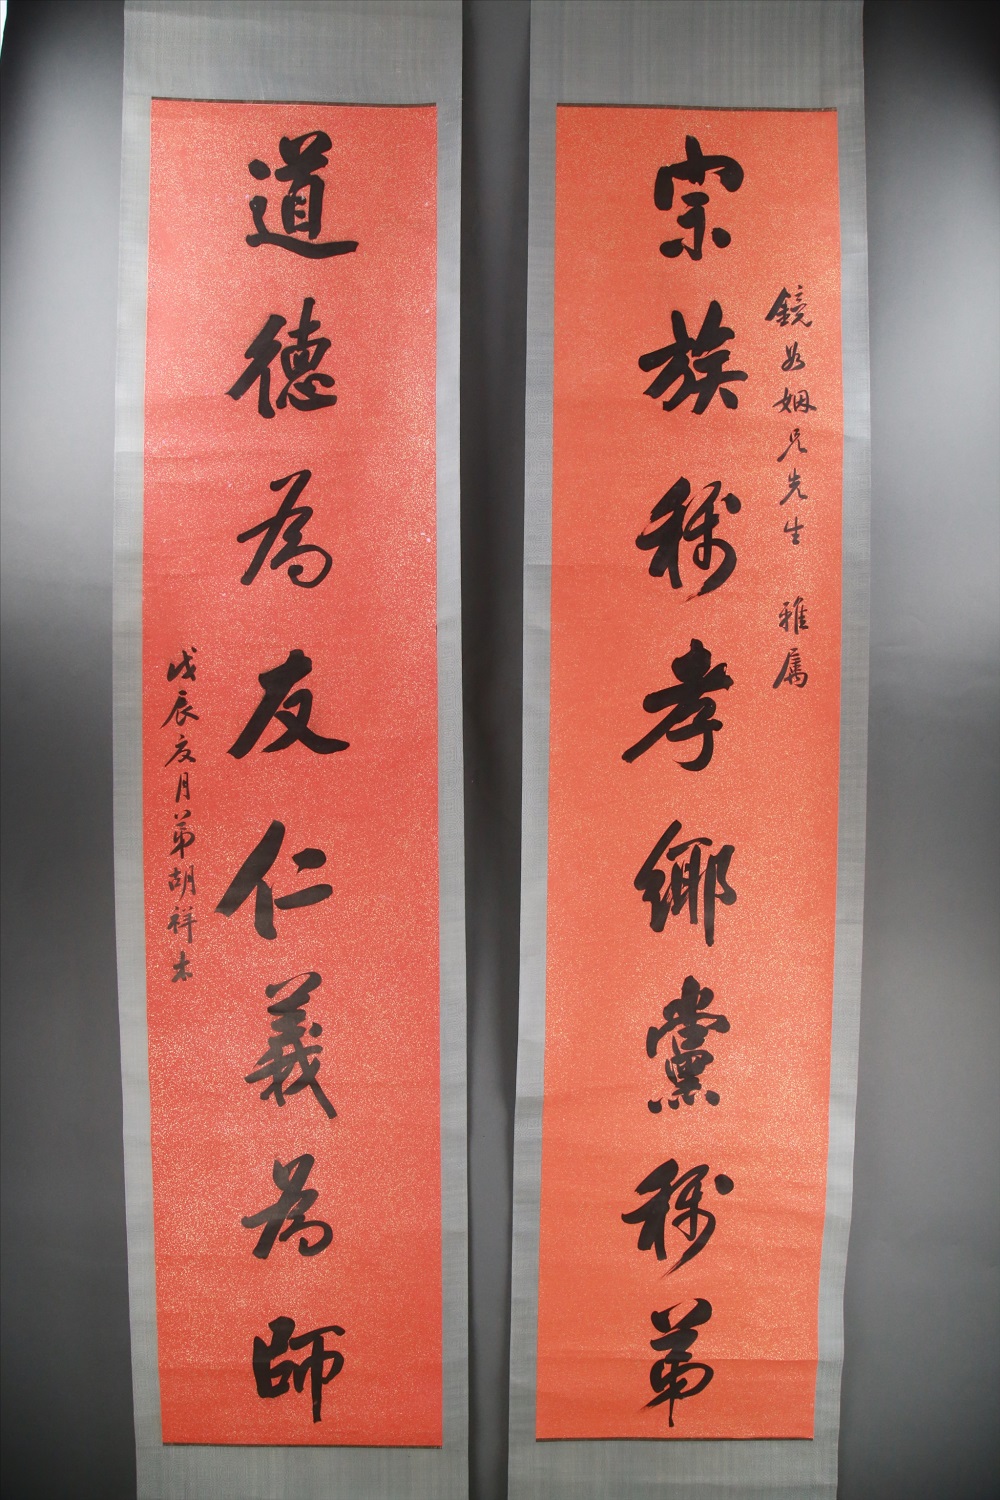 鏡如姻兄先生 雅属
宗族稱孝鄉黨稱弟
道德為友仁義為師
戊辰夏月弟胡祥木